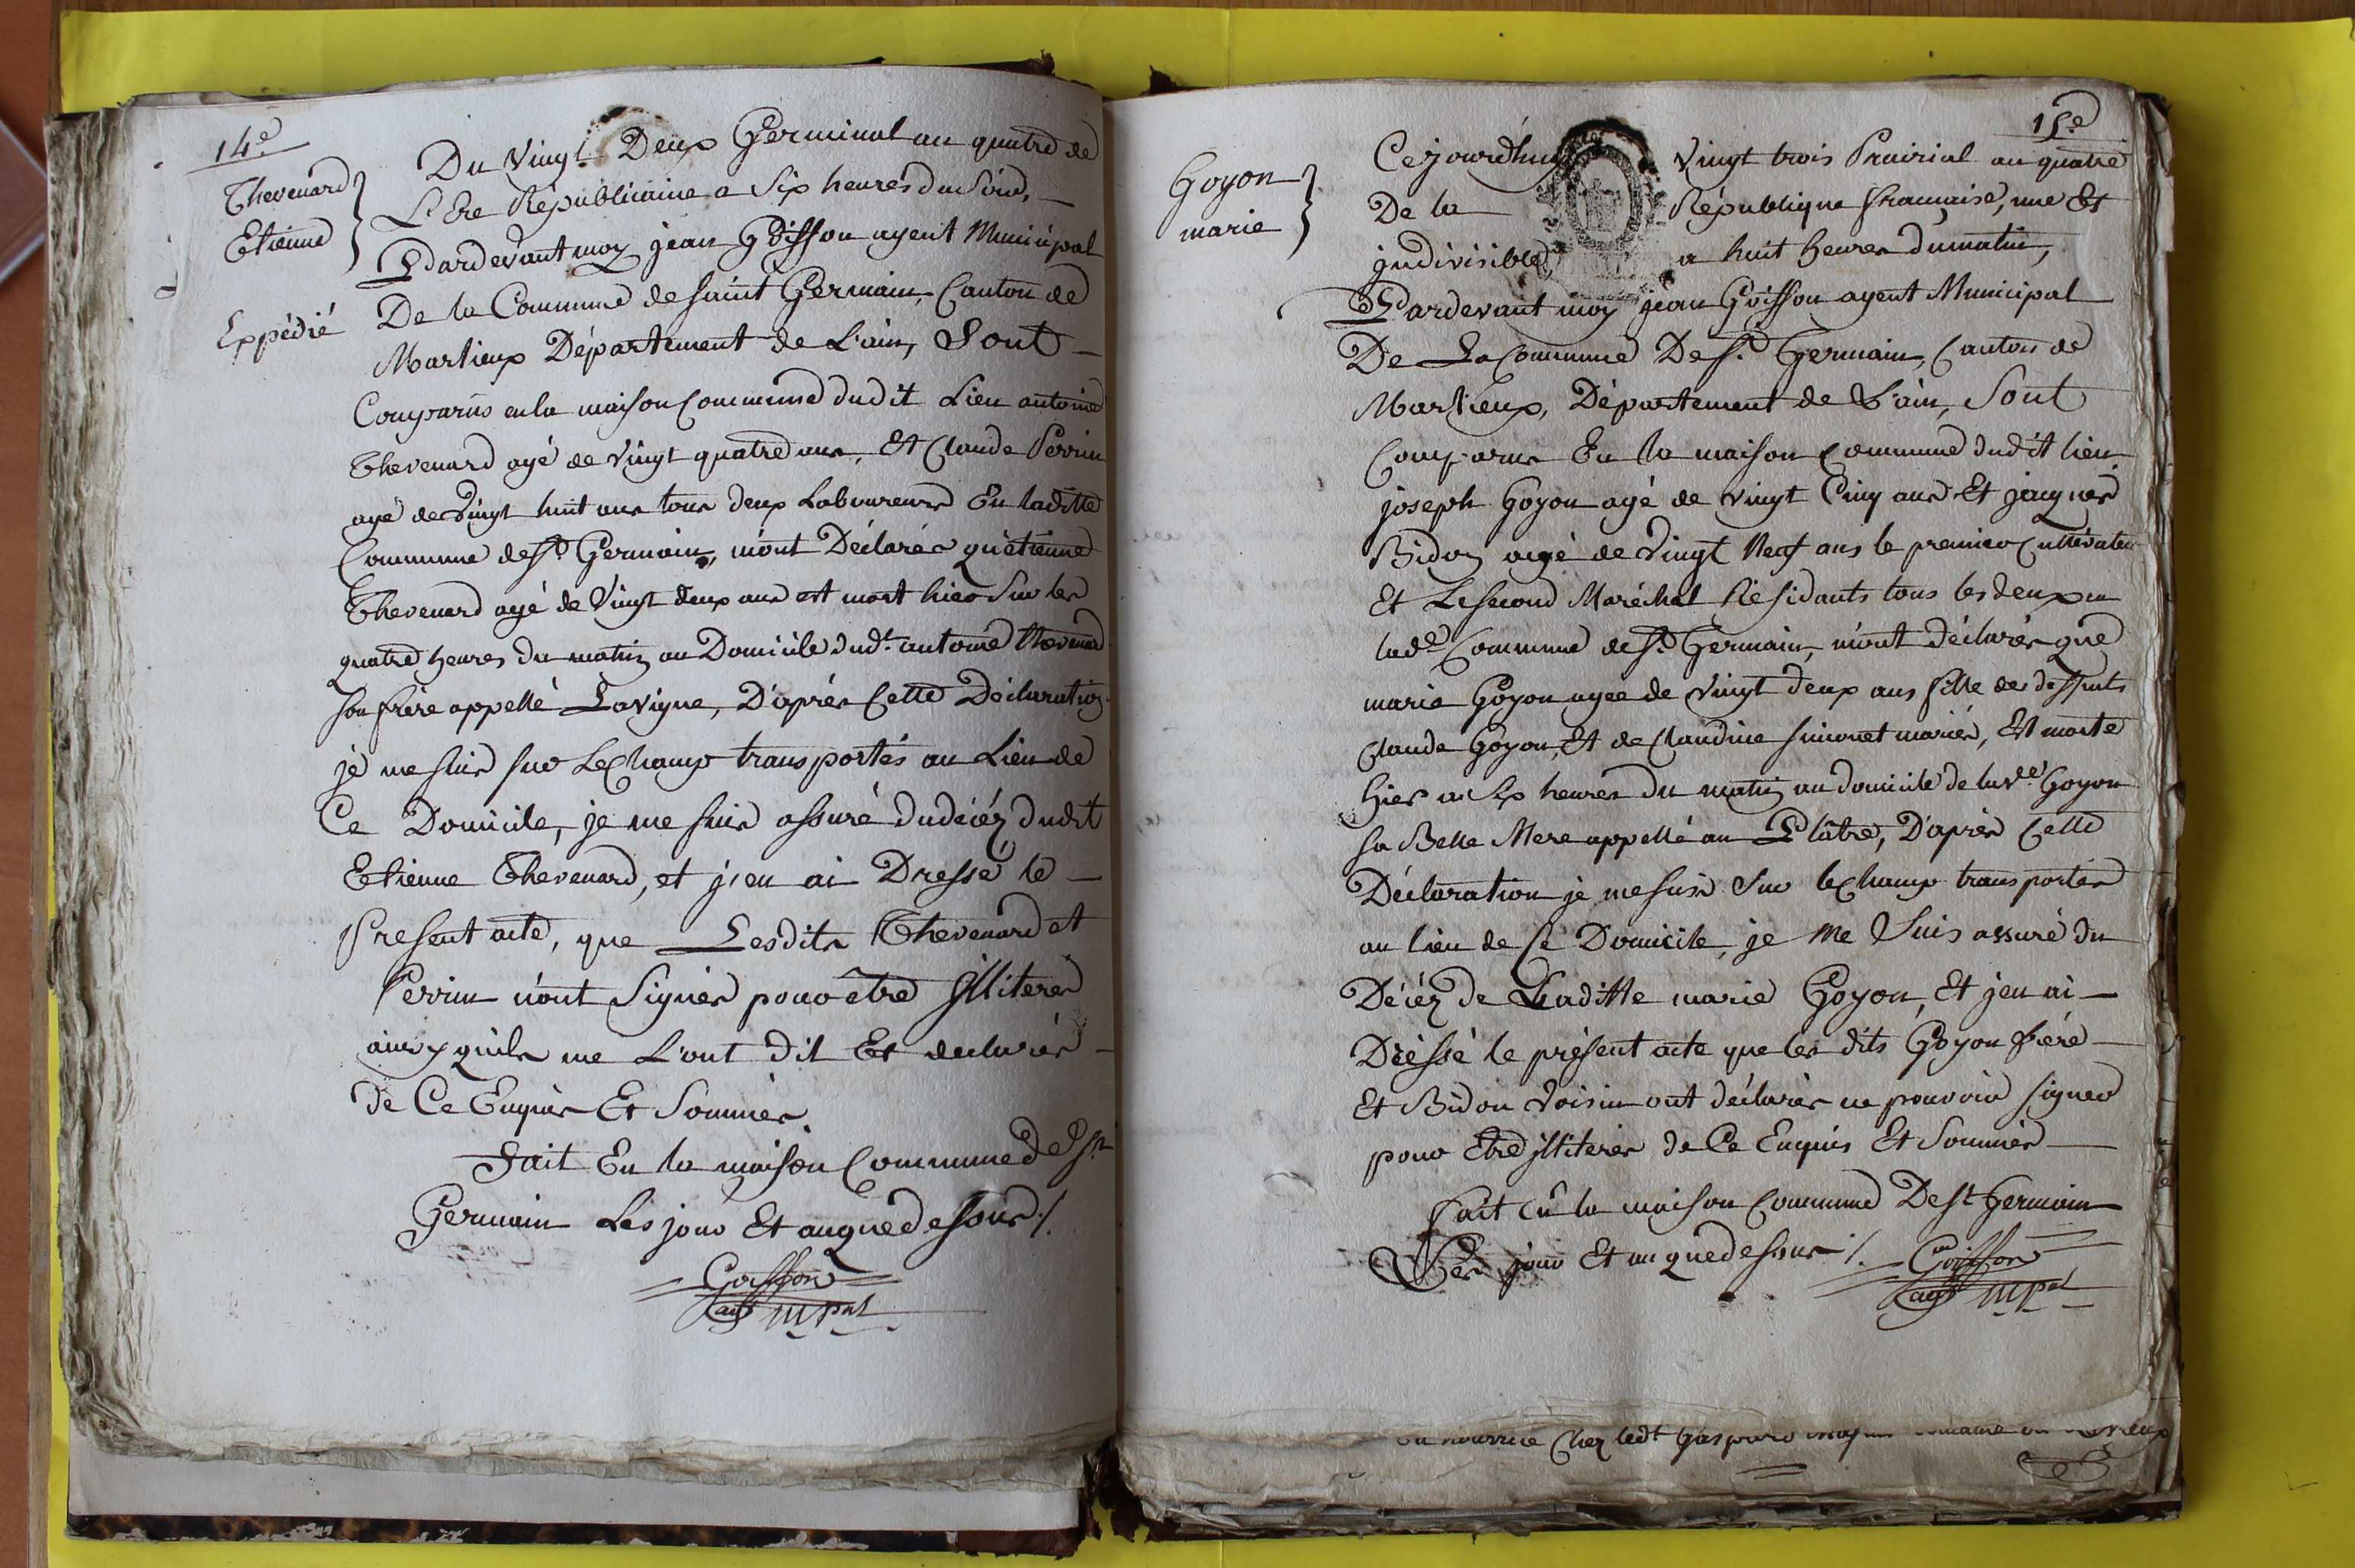 14e
Thevenard
Etienne
Expédié
Du Vingt Deux Germinal an quatre de
L'Ere Républicaine a Six heures du Soir,
Pardevant moy jean Goiffon agent Municipal
De la Commune de Saint Germain, Canton de
Marlieux Département de L'ain, Sont
Comparus en la maison Commune dudit Lieu antoine
Thevenard agé de vingt quatre ans, Et Claude Perrin
agé de vingt huit ans tous deux Laboureurs En laditte
Commune de St Germain, m'ont Déclarés qu'etienne
Thevenard agé de Vingt deux ans est mort hier Sur les
quatre heures du matin au Domicile dudt antoine thevenard
son frère appellé Lavigne, D'après Cette Déclaration
je me suis sur Le Champ transportés au Lieu de
Ce Domicile, je me suis assuré du décéz dudit
Etienne Thevenard, et j'en ai Dressé le
Present acte, que Lesdits Thevenard et
Perrin n'ont Signés pour être illiterés
ainsy quils me L'ont dit Et declarés
de Ce Enquis Et Sommés.
Fait En la maison Commune de St
Germain Les jour Et an que dessous ./.
Goiffon
agt mpal
15e
Goyon
marie
Cejourd'huy Vingt trois Prairial an quatre
De la République française, une Et
indivisible, a huit heures du matin,
Pardevant moy jean Goiffon agent Municipal
De La Commune De St Germain, Canton de
Marlieux, Département de L'ain, Sont
Comparus En la maison Commune dudit lieu
joseph Goyon agé de vingt Cinq ans Et jacques
Bidon agé de vingt Neuf ans le premier Cultivateur
Et Le second Maréchal Residants tous les deux en
lade Commune de St Germain, m'ont déclarés que
marie Goyon agee de vingt deux ans fille de deffunts
Claude Goyon, Et de Claudine simonet mariés, Est morte
hier a Six heures du matin au domicile de la vee Goyon
sa Belle Mere appellé au Plâtre, D'après Cette
Déclaration je me suis Sur le Champ transportés
au lieu de Ce Domicile, je Me Suis assuré du
Décéz de Laditte marie Goyon, Et j'en ai
Dréssé le présent acte que les dits Goyon frére
Et Bidon voisin ont déclarés ne pouvoir signer
pour Etre illiterés de Ce Enquis Et Sommés
fait en la maison Commune De St Germain
Les jour Et an que dessous ./. Goiffon
agt mpal
en nourrice Chez ledt Gaspard